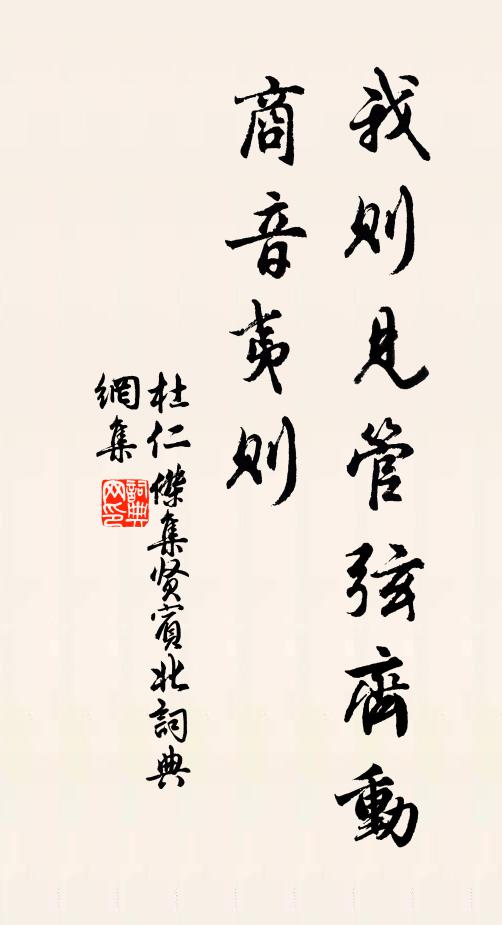 我则見管弦齊動
商音夷则
杜仁傑集贤賓北詞典
網集
詞典網印